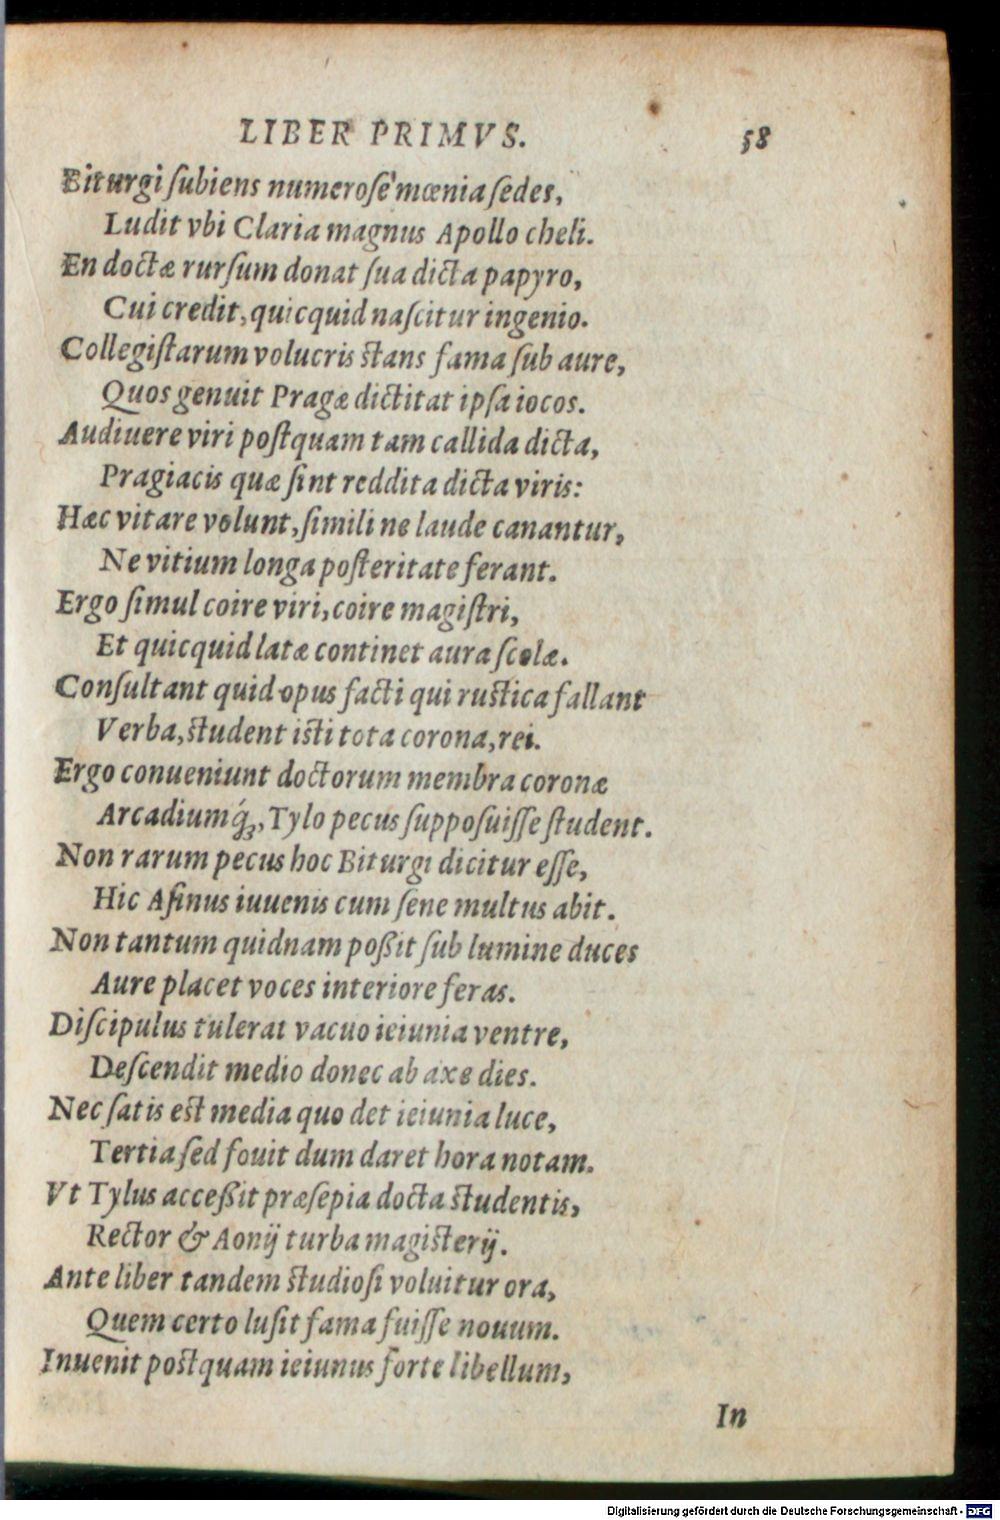 LIBER PRIMVS. 58
Biturgi ſubiens numeroſe' mœnia ſedes,
Ludit vbi Claria magnus Apollo cheli.
En doctæ rurſum donat ſua dicta papyro,
Cui credit, quicquid naſcitur ingenio.
Collegiſtarum volucris ſtans fama ſub aure,
Quos genuit Pragæ dictitat ipſa iocos.
Audiuere viri poſtquam tam callida dicta,
Pragiacis quæ ſint reddita dicta viris:
Hæc vitare volunt, ſimili ne laude canantur,
Ne vitium longa poſteritate ferant.
Ergo ſimul coire viri, coire magiſtri,
Et quicquid latæ continet aura scolæ.
Conſultant quid opus facti qui ruſtica fallant
Verba, ſtudent iſti tota corona, rei.
Ergo conueniunt doctorum membra coronæ
Arcadiumq́ꝫ, Tylo pecus ſuppoſuiſſe ſtudent.
Non rarum pecus hoc Biturgi dicitur eſſe,
Hic Aſinus iuuenis cum ſene multus abit.
Non tantum quidnam poßit ſub lumine duces
Aure placet voces interiore feras.
Diſcipulus tulerat vacuo ieiunia ventre,
Deſcendit medio donec ab axe dies.
Nec ſatis eſt media quo det ieiunia luce,
Tertia ſed fouit dum daret hora notam.
Vt Tylus acceßit præſepia docta ſtudentis,
Rector & Aonij turba magiſterij.
Ante liber tandem ſtudioſi voluitur ora,
Quem certo luſit fama fuiſſe nouum.
Inuenit poſtquam ieiunus forte libellum,
In
Digitalisierung gefördert durch die Deutsche Forschungsgemeinschaft - DFG